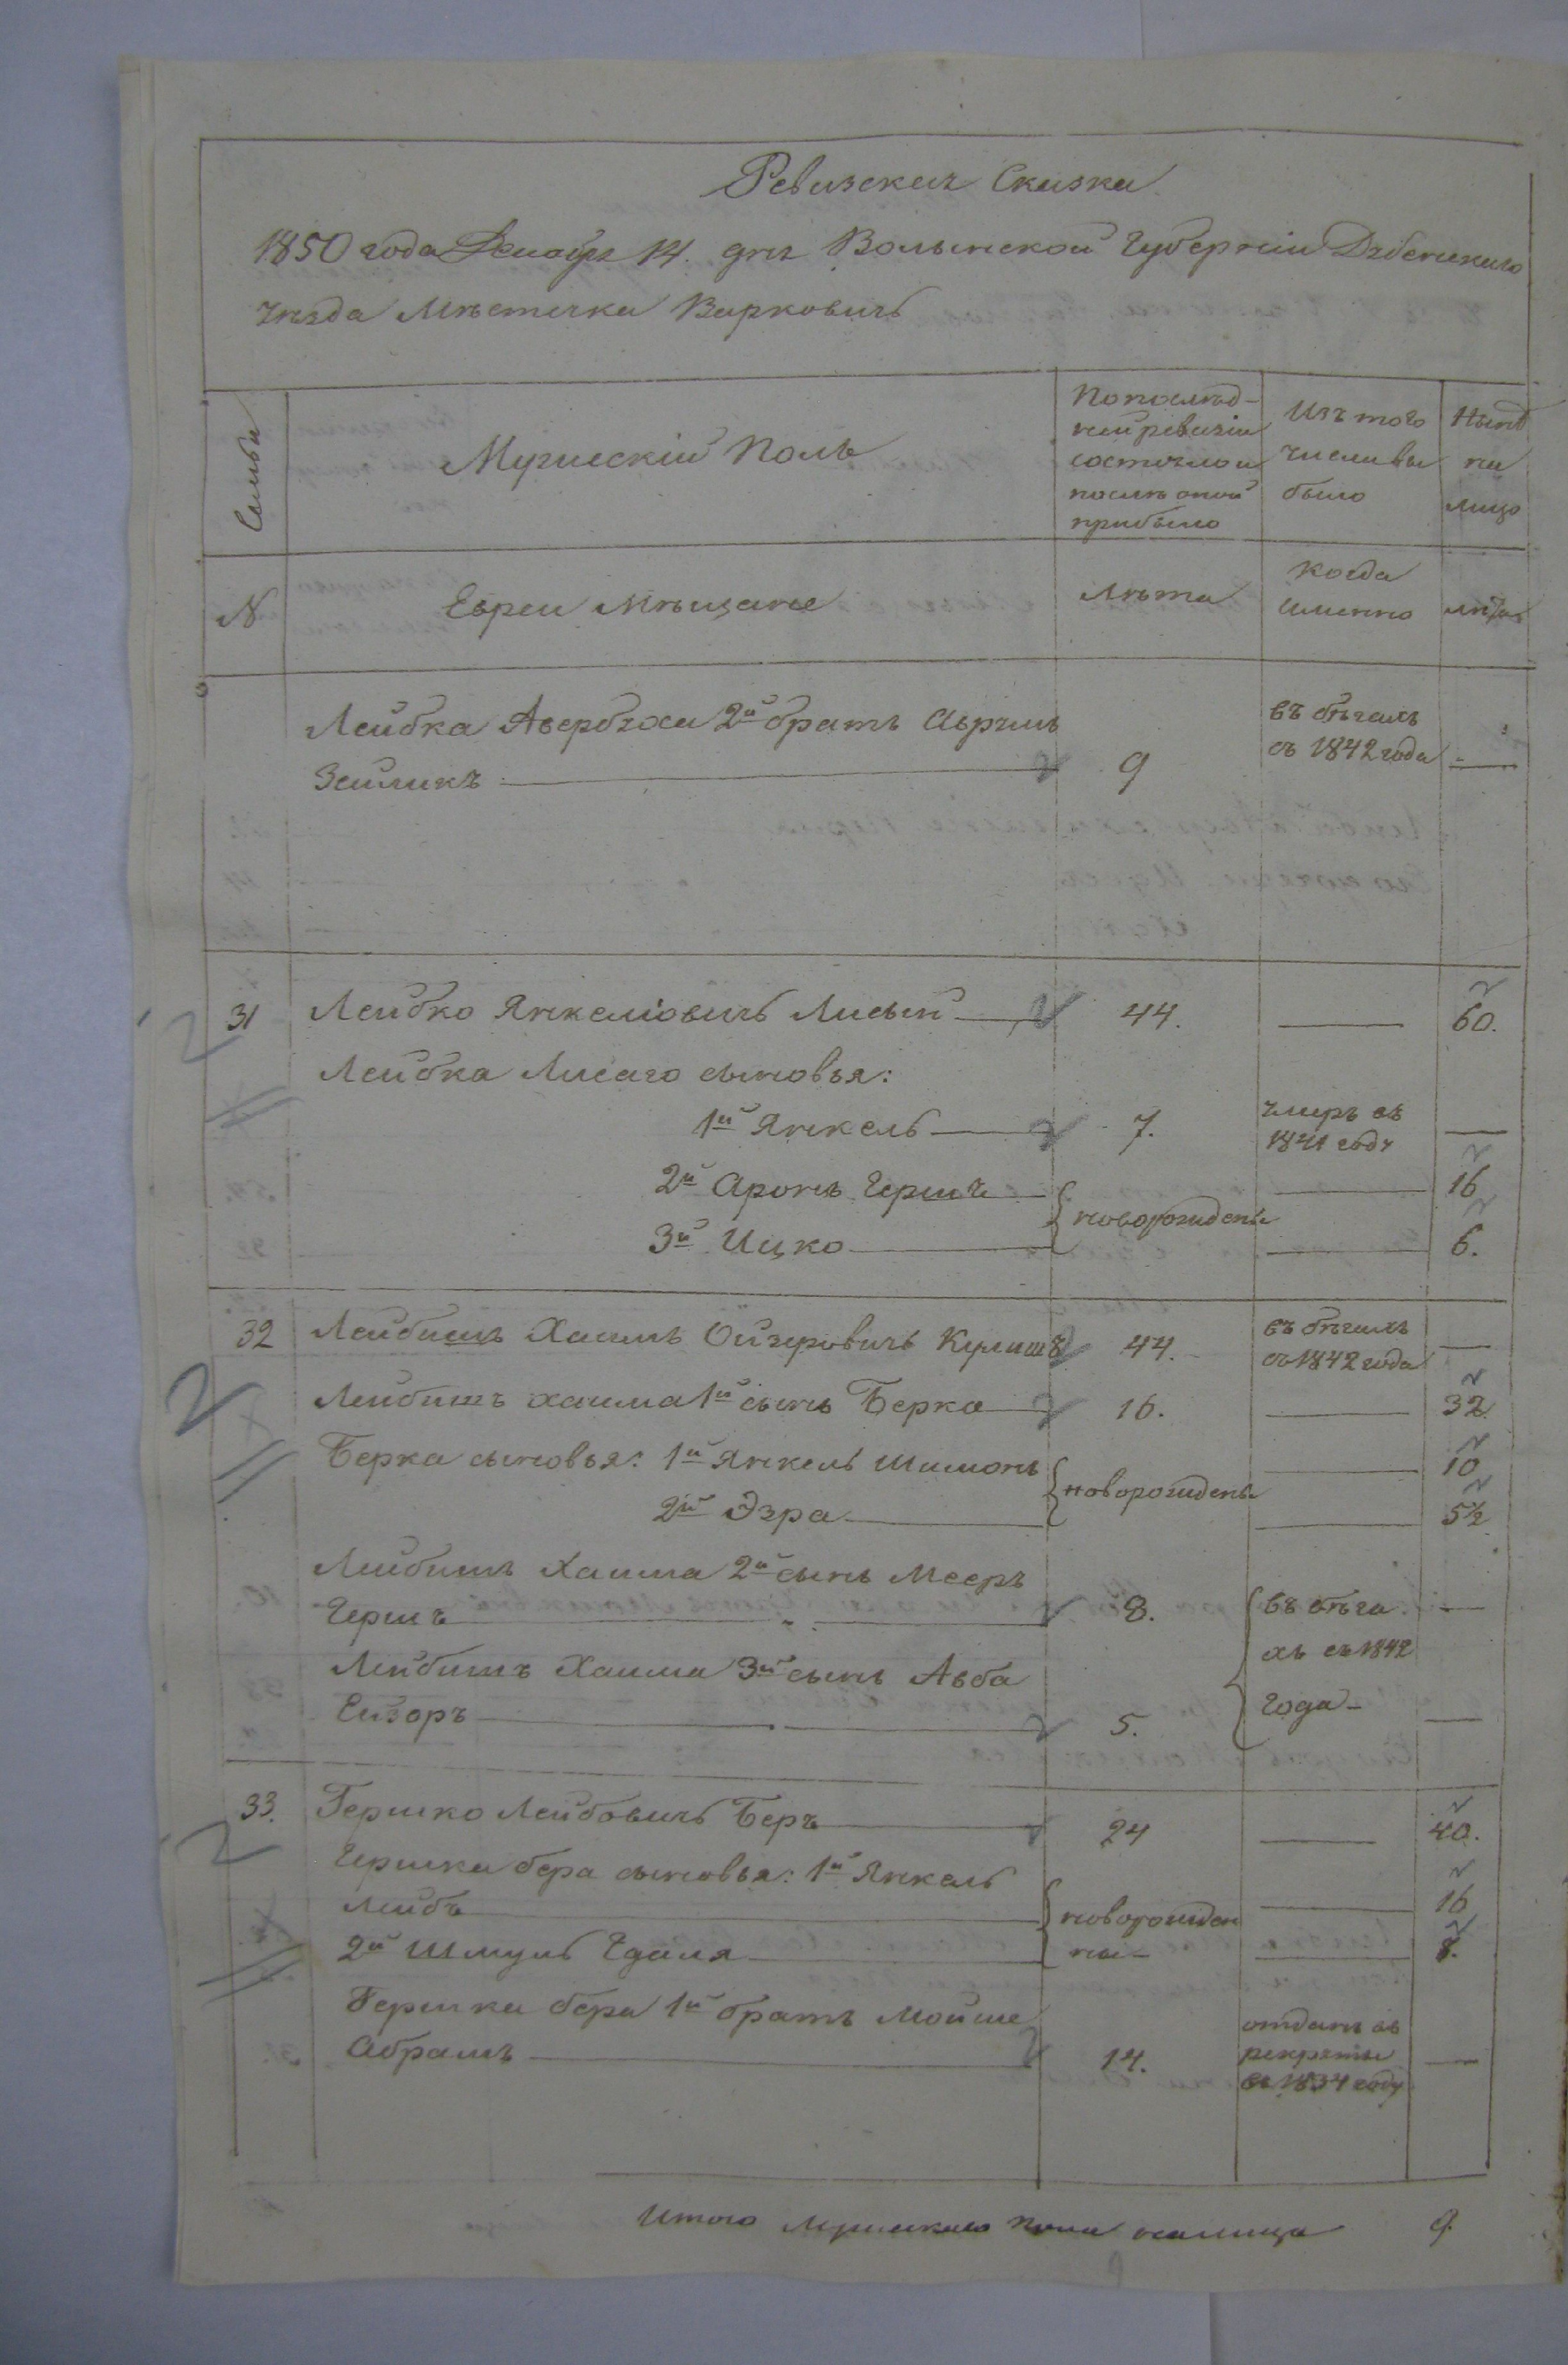 Ревизская Сказка
1850 года Декабря 14. дня Волынской Губернии Дубенскаго
уезда Местечка Варковичь
Семьи
Мужескій Полъ
По послед-
ней ревизіи
состояло и
после оной
прибыло
Изъ того
числа вы
было
Ныне
на
лицо
N
Евреи мещане
лета
когда
именно
лета
Лейбка Авербуха 2й братъ Аврумъ
Зейликъ 9 въ бегахъ
съ 1842 года
31 Лейбко Янкеліовичь Лисый 44. 60.
Лейбка Лисаго сыновья:
1й Янкель 7. умеръ въ
1841 году
2й Аронъ Гершъ новорожденъ 16
3й Ицко 6.
32 Лейбишъ Хаимъ Ойзеровичь Кулишъ 44. въ бегахъ
съ 1842 года
Лейбишъ хаима 1й сынъ Берко 16. 32
Берка сыновья: 1й Янкель Шимонъ новорожденъ 10
2й Эзра 5½
Лейбишъ Хаима 2й сынъ Мееръ
Гершъ 8. въ бега
хъ съ 1842
года
Лейбишъ Хаима 3й сынъ Авба
Ейзоръ 5.
33. Гершко Лейбовичь Беръ 24 40.
Гершка бера сыновья: 1й Янкель
Лейбъ новорожден
ны 16
2й Шмуль Гдаля 8.
Гершка бера 1й братъ Мойше
Абрамъ 14. отданъ въ
рекруты
въ 1834 году
Итого мужескаго пола налицо 9.